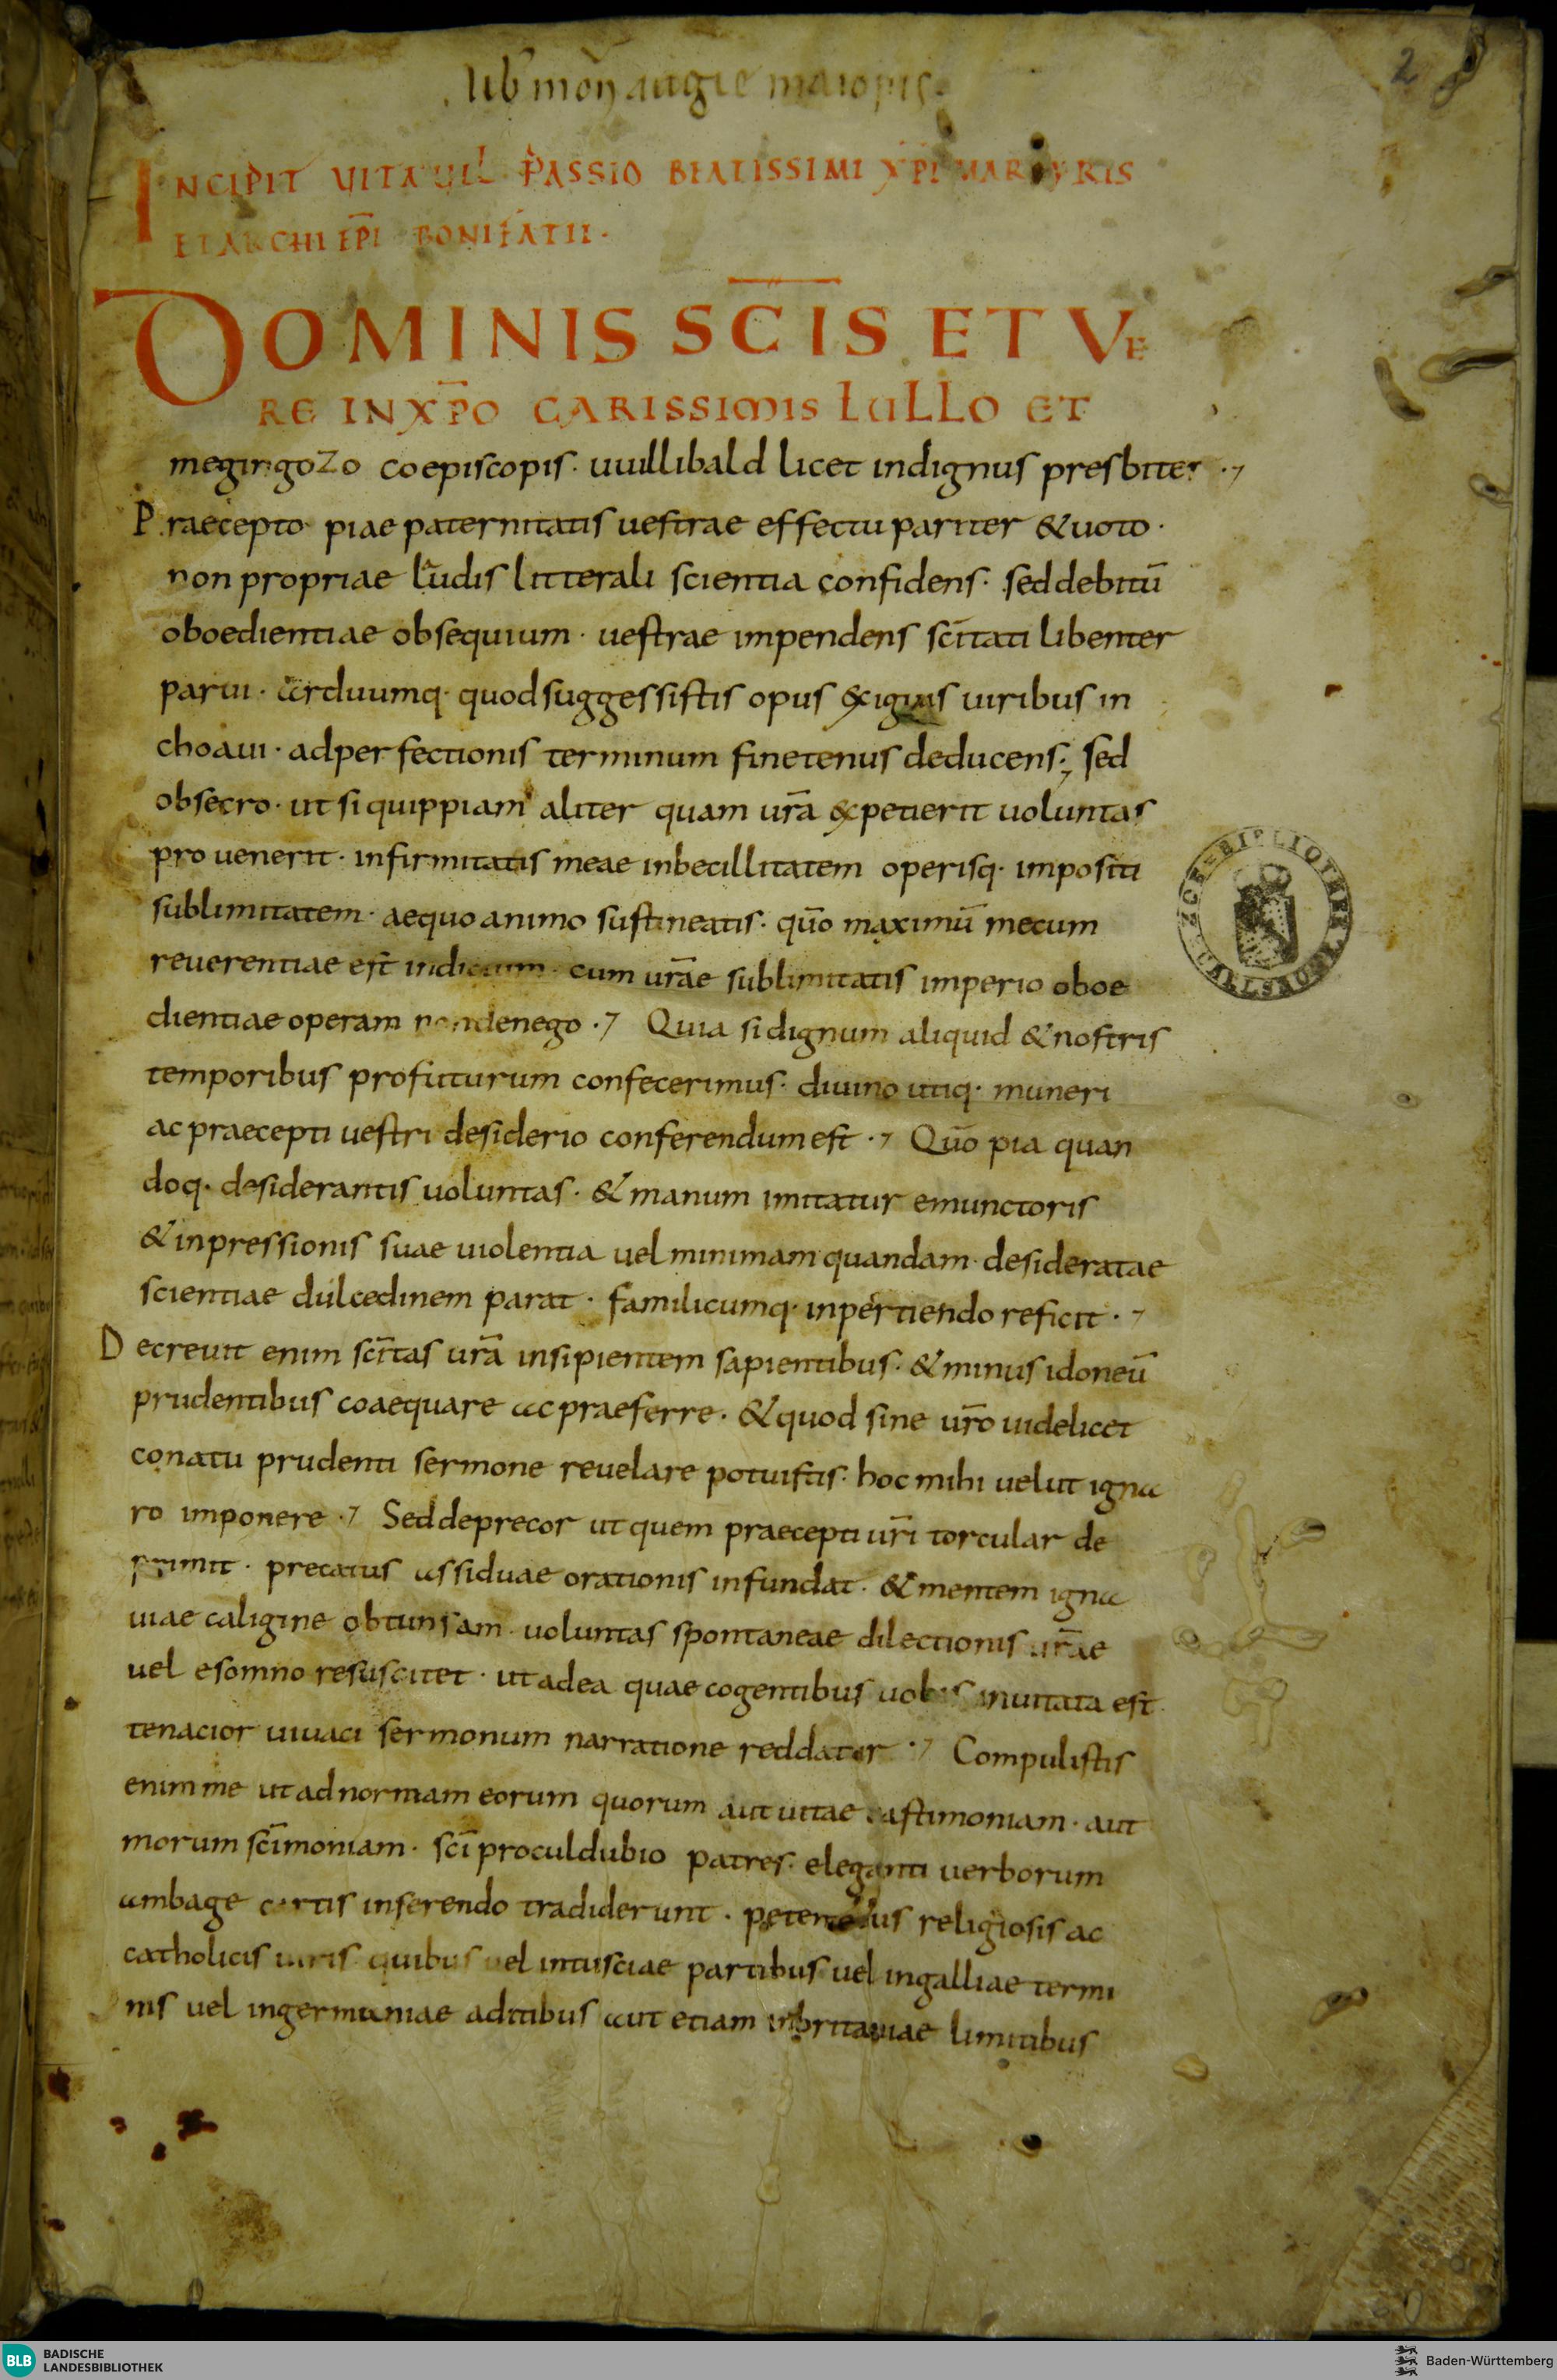 lib' moñ augie maioris.
2
INCIPIT VITA UEL PASSIO BEATISSIMI XP̅I MARTYRIS
ET ARCHIEP̅I BONIFATII.
DOMINIS SC̅IS ET VE
RE IN XP̅O CARISSIMIS LULLO ET
megingozo coepiscopis. uuillibald licet indignus presbiter .7
Praecepto piae paternitatis uestrae effectu pariter & uoto.
non propriae laudis litterali scientia confidens. sed debitū
oboedientiae obsequium. uestrae impendens sc̄itati libenter
parui. arduumq. quod suggessistis opus exiguis uiribus in
choaui. ad perfectionis terminum finetenus deducens; sed
obsecro. ut si quippiam aliter quam ur̄a expetierit uoluntas
prouenerit. infirmitatis meae inbecillitatem operisq. impositi
sublimitatem. aequo animo sustineatis. quō maximū mecum
reuerentiae est indicium. cum ur̄ae sublimitatis imperio oboe
dientiae operam non denego .7 Quia si dignum aliquid & nostris
temporibus profuturum confecerimus. diuino utiq. muneri
ac praecepti uestri desiderio conferendum est .7 Quō pia quan
doq. desiderantis uoluntas. & manum imitatur emunctoris
& inpressionis suae uiolentia uel minimam quandam. desideratae
scientiae dulcedinem parat. familicumq. inpertiendo reficit .7
Decreuit enim sc̄itas ur̄a insipientem sapientibus. & minus idoneū
prudentibus coaequare ac praeferre. & quod sine ur̄o uidelicet
conatu prudenti sermone reuelare potuistis. hoc mihi uelut igna
ro imponere .7 Sed deprecor ut quem praecepti ur̄i torcular de
primit. precatus assiduae orationis infundat. & mentem igna
uiae caligine obtunsam. uoluntas spontaneae dilectionis ur̄ae
uel e somno resuscitet. ut ad ea quae cogentibus uobis inuitata est
tenacior uiuaci sermonum narratione reddatur .7 Compulistis
enim me ut ad normam eorum quorum aut uitae castimoniam. aut
morum sc̄imoniam. sc̄i proculdubio patres. eleganti uerborum
ambage cartis inserendo tradiderunt. petentibus religiosis ac
catholicis uiris quibus uel in tusciae partibus uel in galliae termi
nis uel in germaniae aditibus aut etiam in britaniae limitibus
BLB BADISCHE
LANDESBIBLIOTHEK
Baden-Württemberg